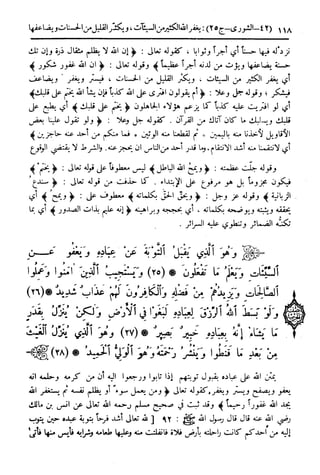 ١١٨ (٤٢ - الشورى - ج٢٥) : يغفر الله الكثير من السيئات ، ويكثر القليل من الحسنات ويضاعفها
نزد له فيها حسناً أي أجراً وثواباً ، كقوله تعالى : ﴿ إن الله لا يظلم مثقال ذرة وإن تك
حسنة يضاعفها ويؤت من لدنه أجراً عظيماً ﴾ وقوله تعالى : ﴿ إن الله غفور شكور ﴾
أي يغفر الكثير من السيئات ، ويكثر القليل من الحسنات ، فيستر ويغفر ويضاعف
فيشكر ، وقوله جل وعلا : ﴿ أم يقولون افترى على الله كذباً فإن يشأ الله يختم على قلبك ﴾
أي لو افتريت عليه كذباً كما يزعم هؤلاء الجاهلون ﴿ يختم على قلبك ﴾ أي يطبع على
قلبك ويسلبك ما كان آتاك من القرآن . كقوله جل وعلا : ﴿ ولو تقول علينا بعض
الأقاويل لأخذنا منه باليمين ، ثم لقطعنا منه الوتين ، فما منكم من أحد عنه حاجزين ﴾
أي لانتقمنا منه أشد الانتقام، وما قدر أحد من الناس أن يحجز عنه. والشرط لا يقتضي الوقوع
وقوله جلت عظمته : ﴿ ويمح الله الباطل ﴾ ليس معطوفاً على قوله تعالى : ﴿ يختم ﴾
فيكون مجزوماً بل هو مرفوع على الإبتداء . كما حذفت من قوله تعالى : ﴿ سندع
الزبانية ﴾ وقوله عز وجل : ﴿ ويحق الحق بكلماته ﴾ معطوف على : ﴿ ويمح ﴾ أي
يحققه ويثبته ويوضحه بكلماته ، أي بحججه وبراهينه ﴿ إنه عليم بذات الصدور ﴾ أي بما
تكنّه الضمائر وتنطوي عليه السرائر .
وَهُوَ الَّذِي يَقْبَلُ التَّوْبَةَ عَنْ عِبَادِهِ وَيَعْفُو عَنِ
السَّيِّئَاتِ وَيَعْلَمُ مَا تَفْعَلُونَ (٢٥) وَيَسْتَجِيبُ الَّذِينَ آمَنُوا وَعَمِلُوا
الصَّالِحَاتِ وَيَزِيدُهُمْ مِنْ فَضْلِهِ وَالْكَافِرُونَ لَهُمْ عَذَابٌ شَدِيدٌ (٢٦)
وَلَوْ بَسَطَ اللهُ الرِّزْقَ لِعِبَادِهِ لَبَغَوْا فِي الْأَرْضِ وَلَكِنْ يُنَزِّلُ بِقَدَرٍ
مَا يَشَاءُ إِنَّهُ بِعِبَادِهِ خَبِيرٌ بَصِيرٌ (٢٧) وَهُوَ الَّذِي يُنَزِّلُ الْغَيْثَ
مِنْ بَعْدِ مَا قَنَطُوا وَيَنْشُرُ رَحْمَتَهُ وَهُوَ الْوَلِيُّ الْحَمِيدُ (٢٨)
يمتن الله على عباده بقبول توبتهم إذا تابوا ورجعوا إليه أن من كرمه وحلمه انه
يعفو ويصفح ويستر ويغفر. كقوله تعالى ﴿ ومن يعمل سوءاً أو يظلم نفسه ثم يستغفر الله
يجد الله غفوراً رحيماً ﴾ وقد ثبت في صحيح مسلم رحمه الله تعالى عن انس بن مالك
رضي الله عنه قال قال رسول الله : ٩٢ [ لله تعالى أشد فرحاً بتوبة عبده حين يتوب
إليه من أحدكم كانت راحلته بأرض فلاة فانفلتت منه وعليها طعامه وشرابه فأيس منها فأتى